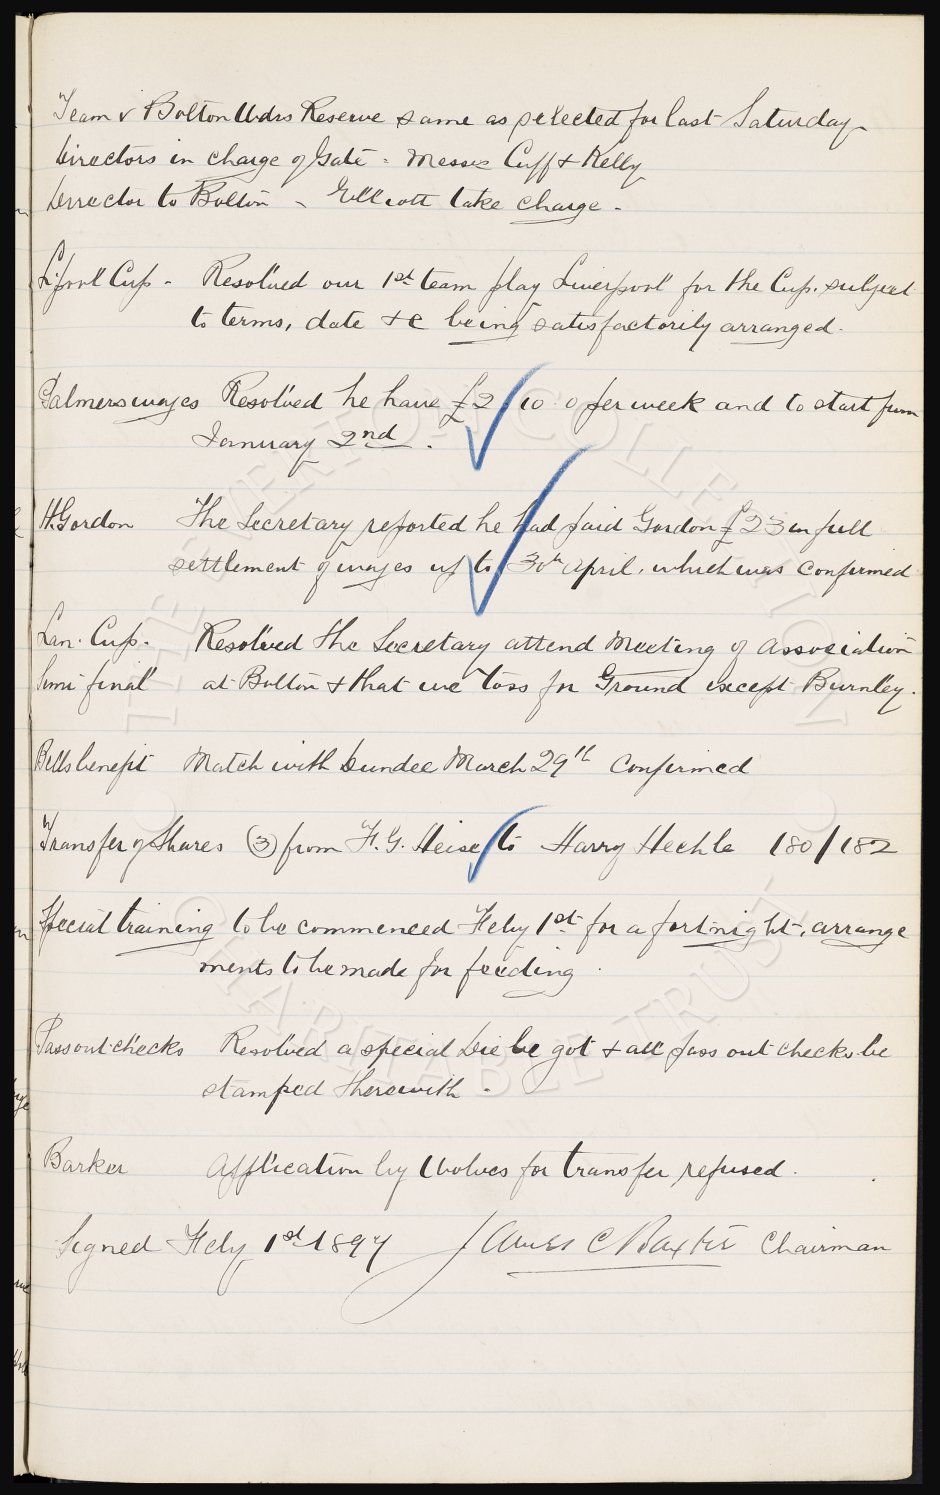 Team v Bolton Wdrs Reserve same as selected for last Saturday
Directors in charge of Gate - Messrs Cuff & Kelly
Director to Bolton - Elliott take charge -
L'pool Cup - Resolved our 1st team play Liverpool for the Cup. subject
to terms, date &c being satisfactorily arranged.
Palmers wages Resolved he have £2 10 0 per week and to start from
January 2nd.
H. Gordon The Secretary reported he had paid Gordon £23 in full
settlement of wages up to 30th April, which was confirmed
Lan. Cup. Resolved the Secretary attend Meeting of Association
Semi final at Bolton & that we toss for Ground except Burnley.
Bells benefit Match with Dundee March 29th confirmed
Transfer of Shares (3) from F. G. Heise to Harry Hechle 180/182
Special training to be commenced Feby 1st for a fortnight, arrange
ments to be made for feeding.
Pass out checks Resolved a special Die be got & all pass out checks be
stamped therewith -
Barker Application by Wolves for transfer refused.
Signed Feby 1st 1897 James C Baxter Chairman
THE EVERTON COLLECTION
CHARITABLE TRUST